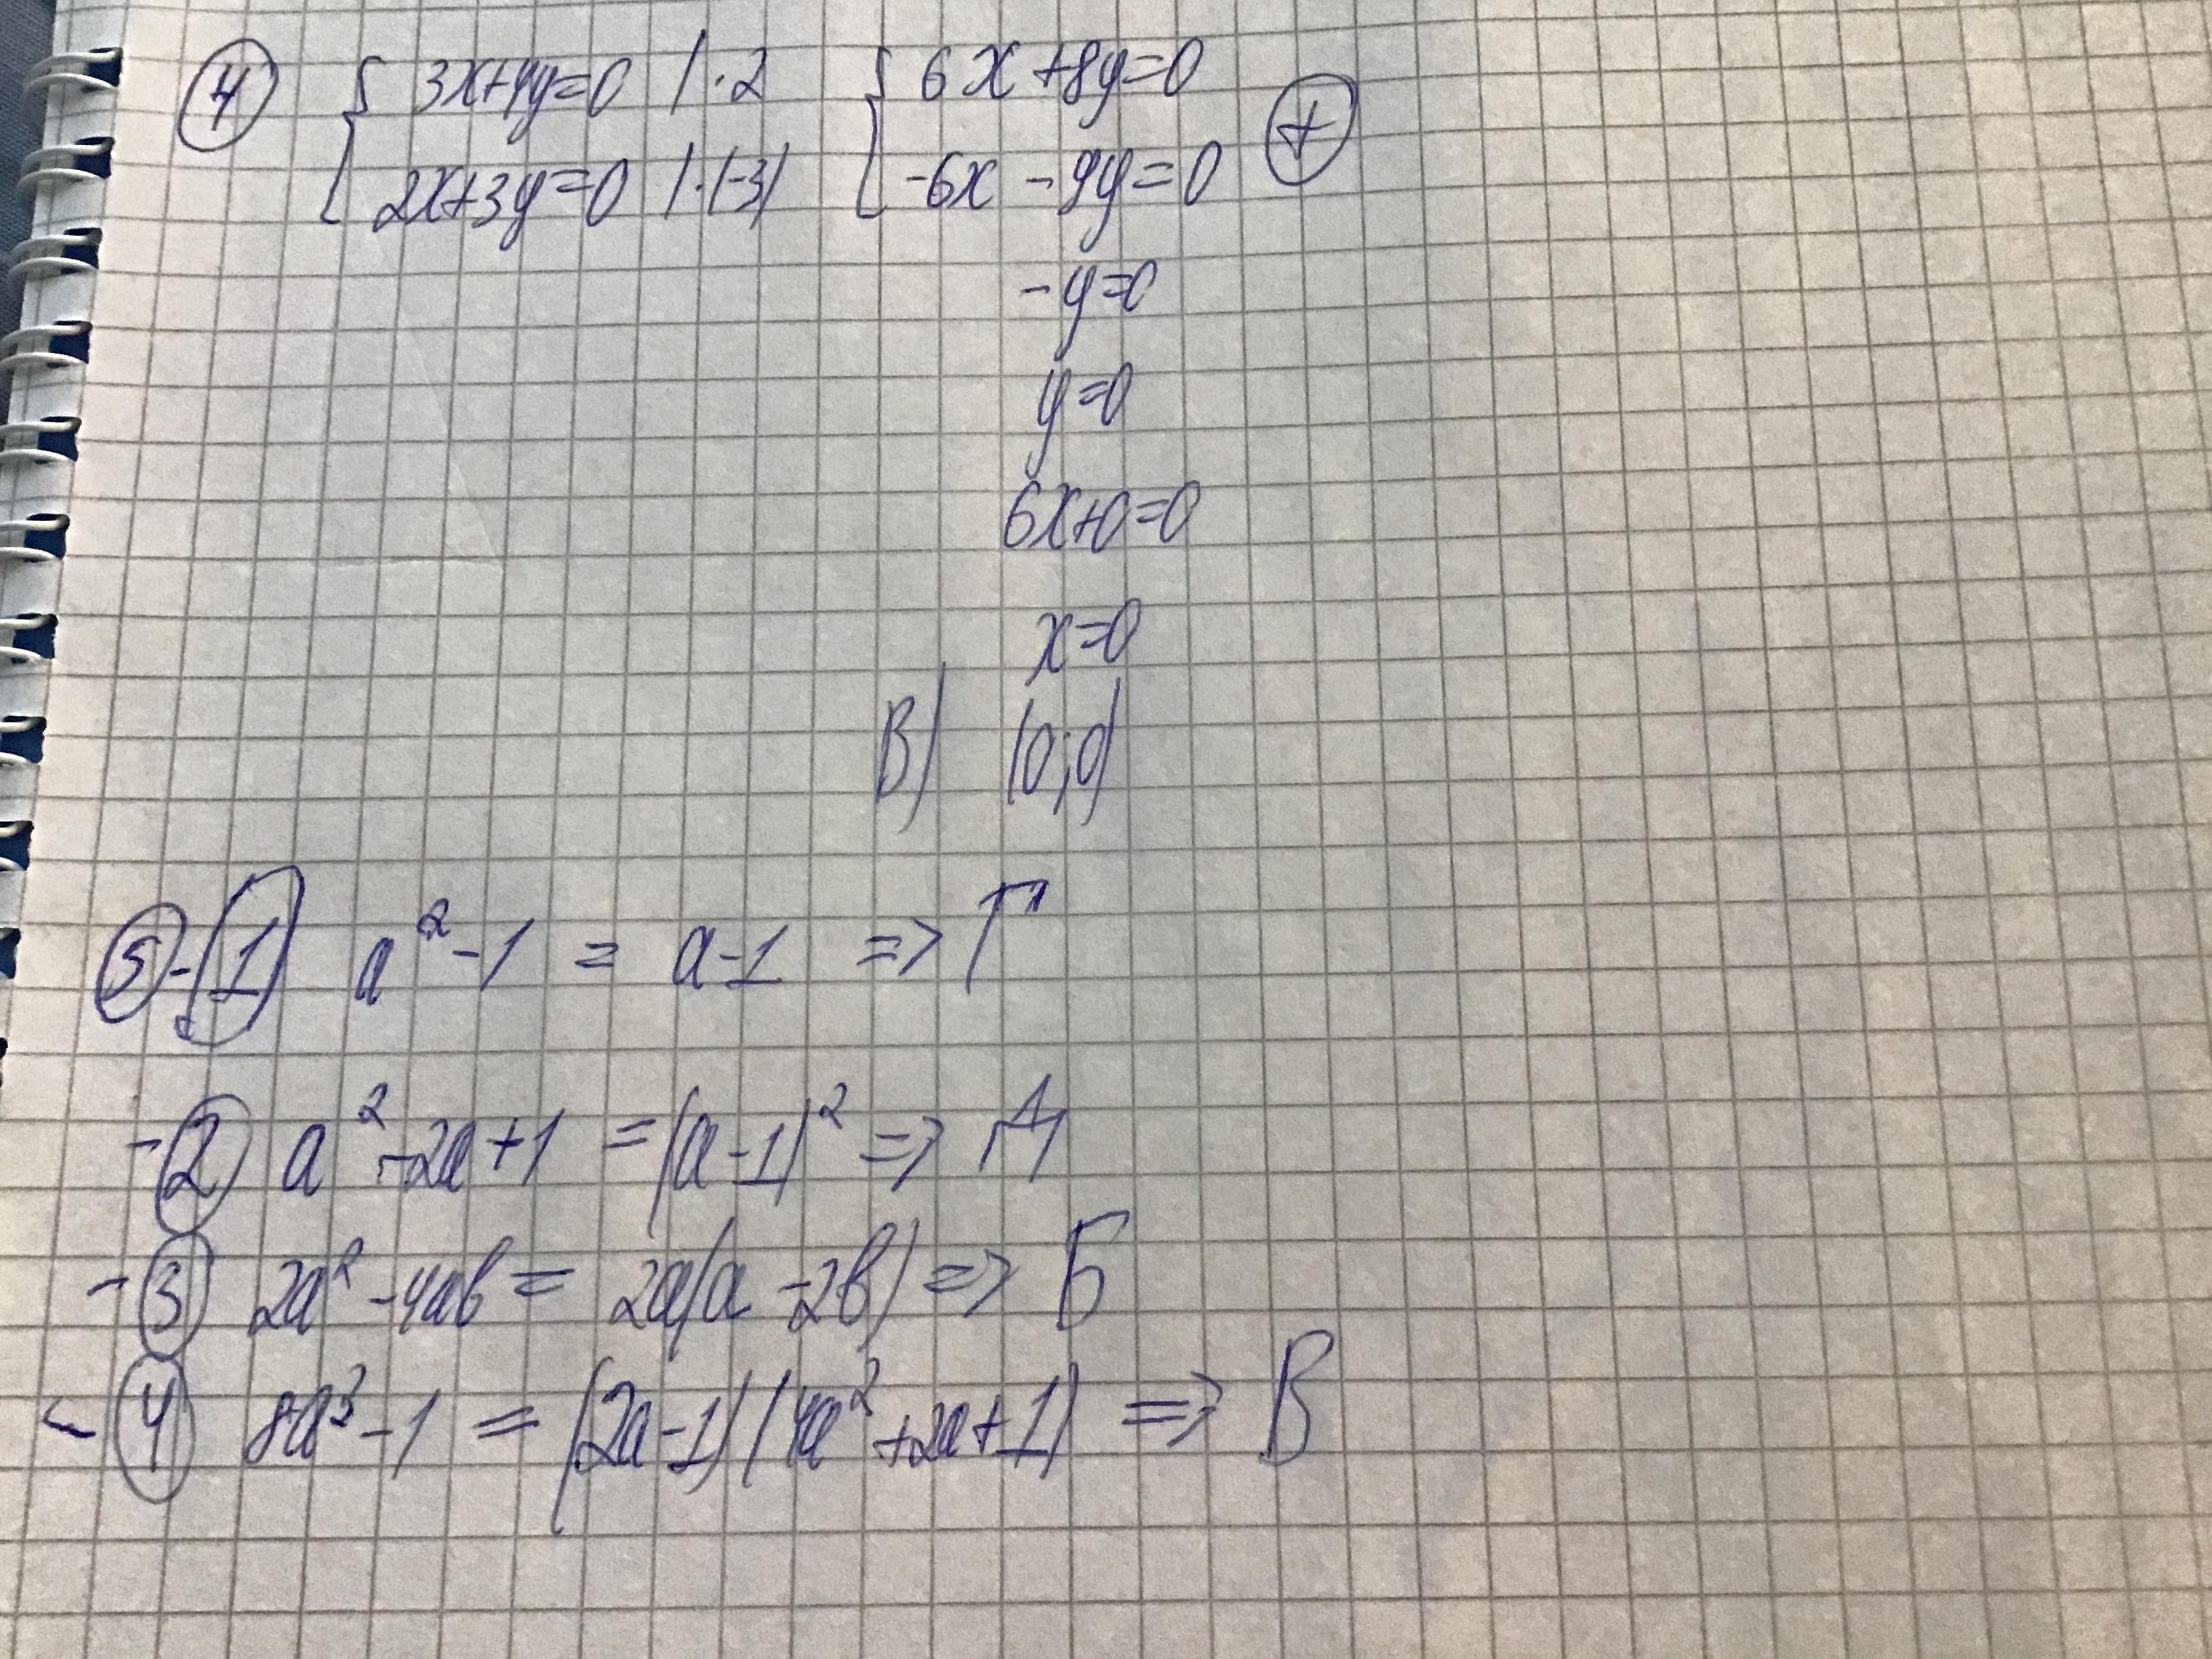 ④ { 3x+4y=0 | ·2 { 6x+8y=0
2x+3y=0 | ·(-3) -6x-9y=0 ⊕
-y=0
y=0
6x+0=0
x=0
В) (0;0)
⑤-① a²-1 = a-1 => Г
-② a²-2a+1 = (a-1)² => Д
-③ 2a²-4ab = 2a(a-2b) => Б
-④ 8a³-1 = (2a-1)(4a²+2a+1) => В